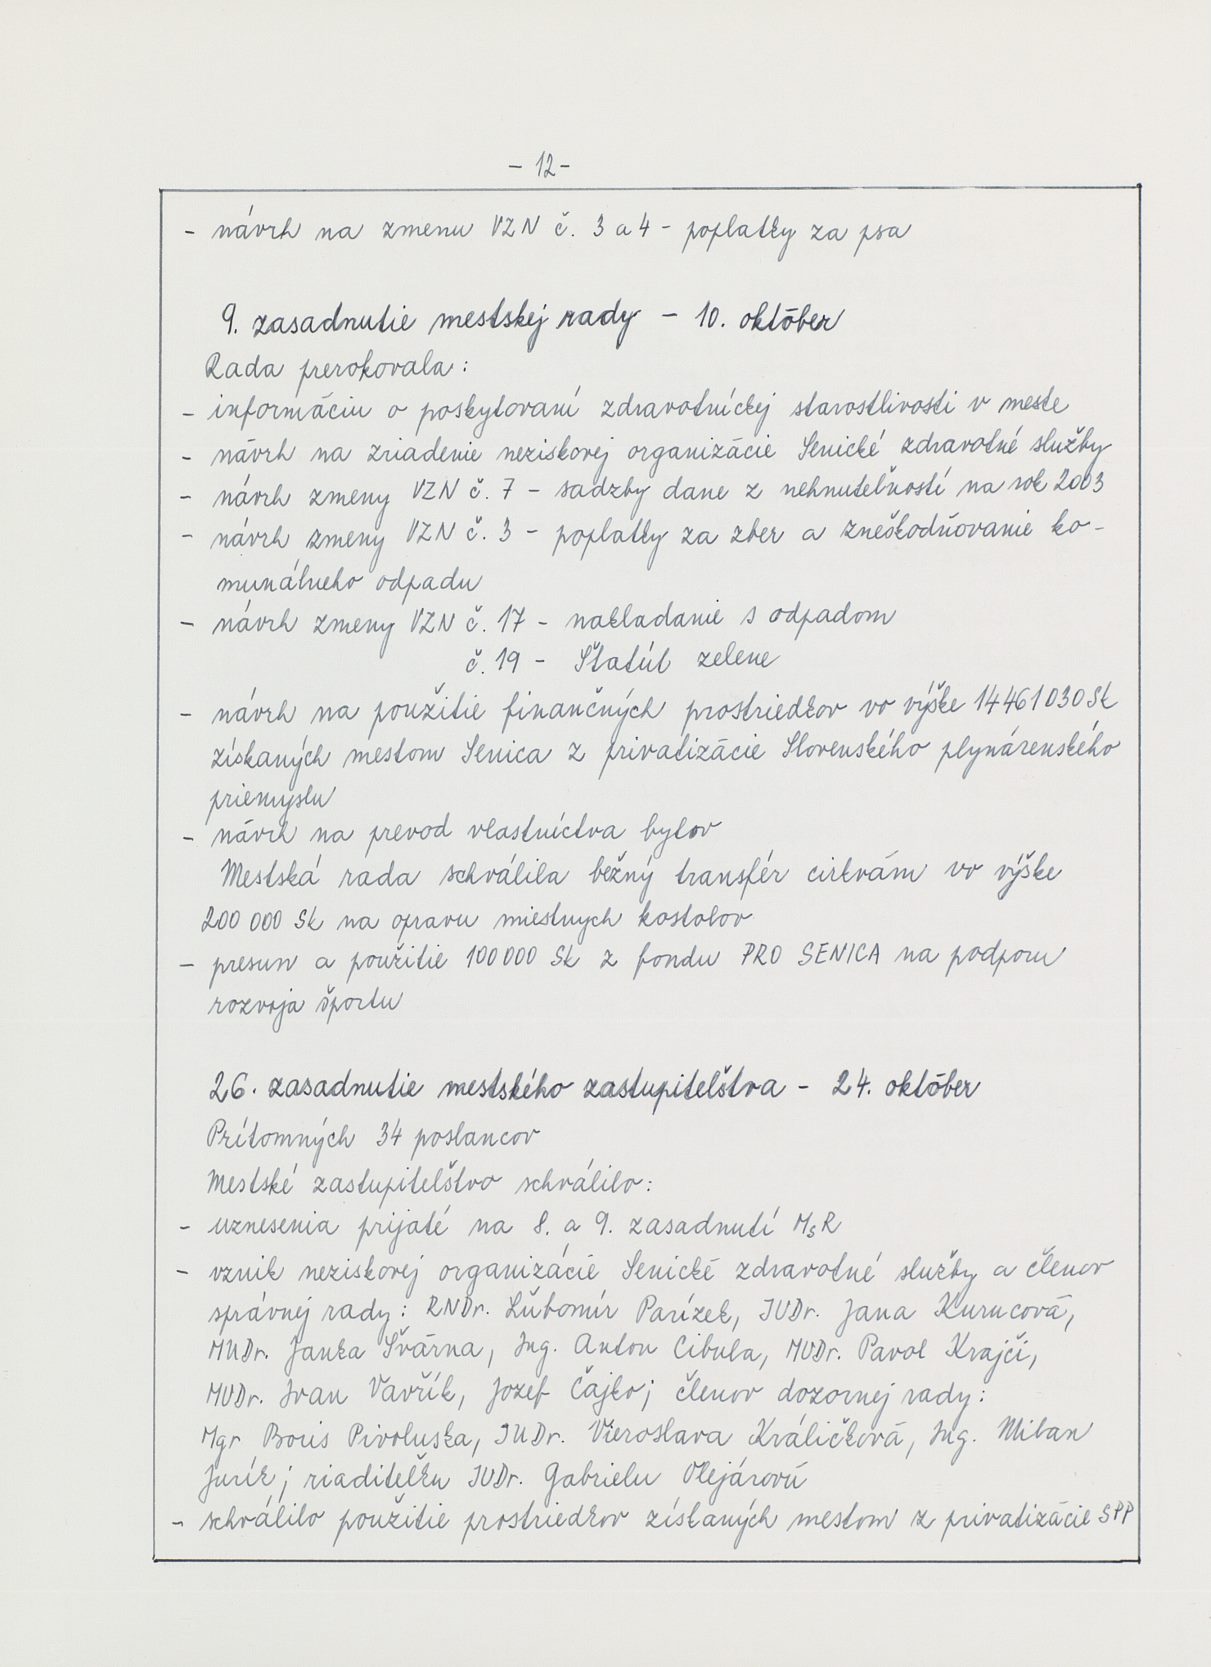 - 12 -
- návrh na zmenu VZN č. 3 a 4 - poplatky za psa
9. zasadnutie mestskej rady - 10. október
Rada prerokovala:
- informáciu o poskytovaní zdravotníckej starostlivosti v meste
- návrh na zriadenie neziskovej organizácie Senické zdravotné služby
- návrh zmeny VZN č. 7 - sadzby dane z nehnuteľností na rok 2003
- návrh zmeny VZN č. 3 - poplatky za zber a zneškodňovanie ko-
munálneho odpadu
- návrh zmeny VZN č. 17 - nakladanie s odpadom
č. 19 - Štatút zelene
- návrh na použitie finančných prostriedkov vo výške 14 461 030 Sk
získaných mestom Senica z privatizácie Slovenského plynárenského
priemyslu
- návrh na prevod vlastníctva bytov
Mestská rada schválila bežný transfér cirkvám vo výške
200 000 Sk na opravu miestnych kostolov
- presun a použitie 100 000 Sk z fondu PRO SENICA na podporu
rozvoja športu
26. zasadnutie mestského zastupiteľstva - 24. október
Prítomných 34 poslancov
Mestské zastupiteľstvo schválilo:
- uznesenia prijaté na 8. a 9. zasadnutí MsR
- vznik neziskovej organizácie Senické zdravotné služby a členov
správnej rady: RNDr. Ľubomír Parízek, JUDr. Jana Kurucová,
MUDr. Janka Švárna, Ing. Anton Cibula, MUDr. Pavol Krajči,
MUDr. Ivan Vavřík, Jozef Čajko; členov dozornej rady:
Mgr Boris Pivoluska, JUDr. Vieroslava Králičková, Ing. Milan
Jurík; riaditeľku JUDr. Gabrielu Olejárovú
- schválilo použitie prostriedkov získaných mestom z privatizácie SPP